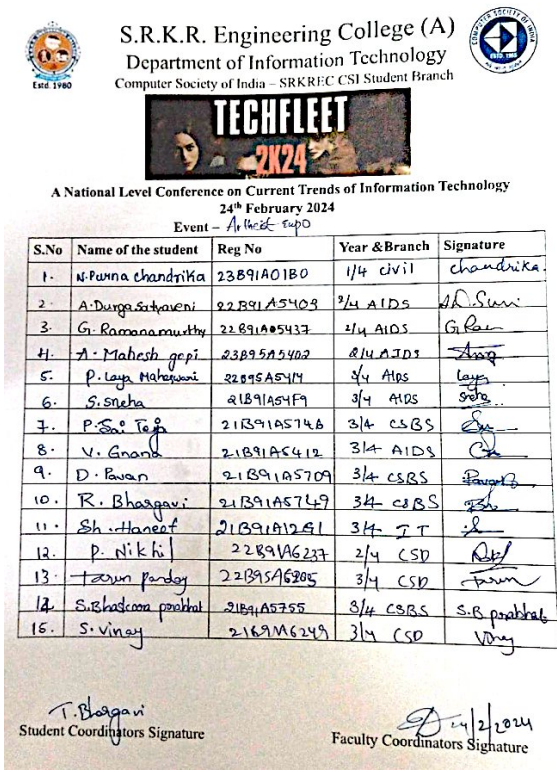 S.R.K.R. Engineering College (A)
Department of Information Technology
Computer Society of India – SRKREC CSI Student Branch
Estd. 1980
COMPUTER SOCIETY OF INDIA
TECHFLEET
2K24
A National Level Conference on Current Trends of Information Technology
24th February 2024
Event – Artheist Expo
S.No Name of the student Reg No Year &Branch Signature
1. N.Purna chandrika 23B91A01B0 1/4 civil chandrika.
2. A.Durgasatyaveni 22B91A5403 2/4 AIDS
3. G. Ramanamurthy 22B91A5437 2/4 AIDS
4. A. Mahesh gopi 23B95A5402 2/4 AIDS
5. P. Laya Maheswari 22B95A5414 3/4 AIDS Laya
6. S.Sneha 21B91A54F9 3/4 AIDS Sneha
7. P.Sai Teja 21B91A5748 3/4 CSBS
8. V. Gnand 21B91A5412 3/4 AIDS
9. D. Pavan 21B91A5709 3/4 CSBS
10. R. Bhargavi 21B91A5749 3/4 CSBS
11. Sh. Haneef 21B91A12G1 3/4 IT
12. P. Nikhil 22B91A6237 2/4 CSD
13. Tarun pandey 22B95A6205 3/4 CSD Tarun
14. S.Bhaskara prabhat 21B91A5755 3/4 CSBS S.B prabhat
15. S. vinay 21B91A6249 3/4 CSD Vinay
T. Bhargavi
Student Coordinators Signature
24/2/2024
Faculty Coordinators Signature